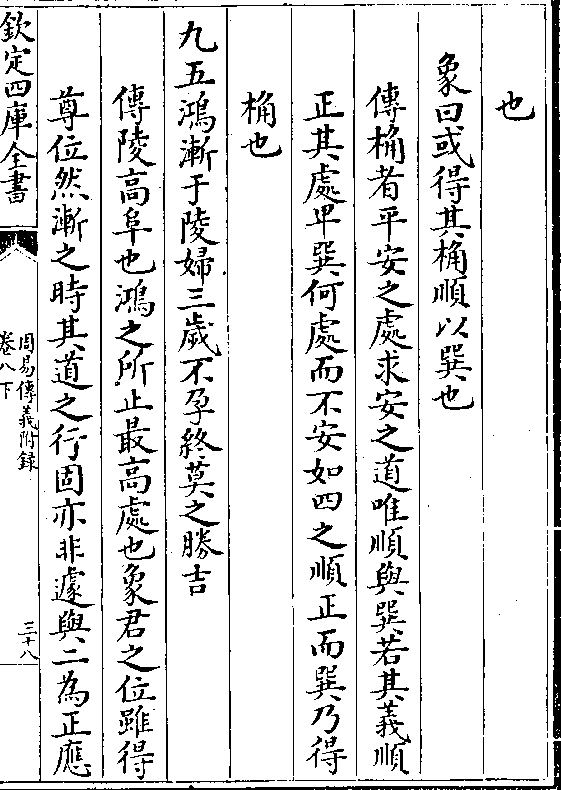 也
象曰或得其桷順以巽也
傳桷者平安之處求安之道唯順與巽若其義順
正其處卑巽何處而不安如四之順正而巽乃得
桷也
九五鴻漸于陵婦三歲不孕終莫之勝吉
傳陵高阜也鴻之所止最高處也象君之位雖得
尊位然漸之時其道之行固亦非遽與二為正應
欽定四庫全書
周易傳義附録
卷八下
三十八